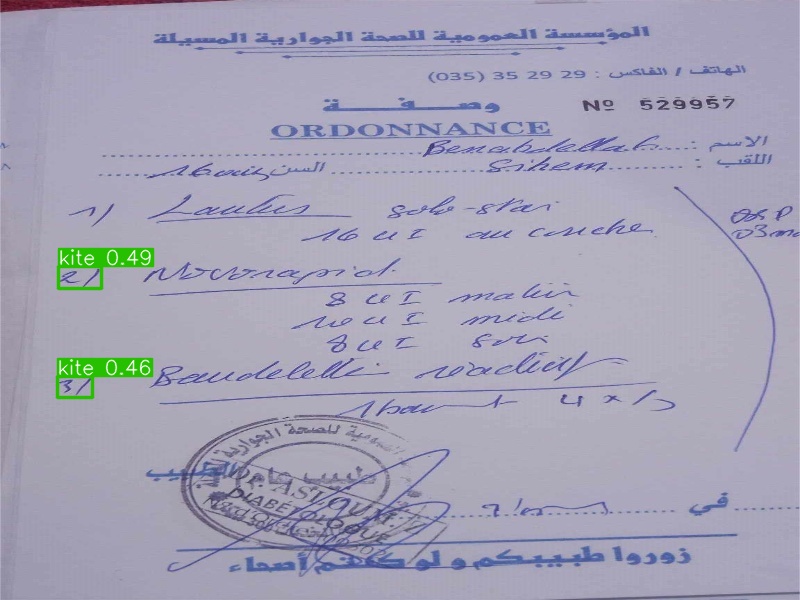 المؤسسة العمومية للصحة الجوارية المسيلة
الهاتف / الفاكس : 29 29 35 (035)
وصفة
Nº 529957
ORDONNANCE
الاسم : Benabdellah
اللقب : Sihem السن 16 ans
1) Lantus solo-star
16 UI au couche
kite 0.49
2/ Novorapid
8 UI matin
10 UI midi
8 UI soir
kite 0.46
3/ Bandelette réactif
4 x/j
طبيب عام
الطبيب
DIABETOLOGUE
في
زوروا طبيبكم و لو كنتم أصحاء